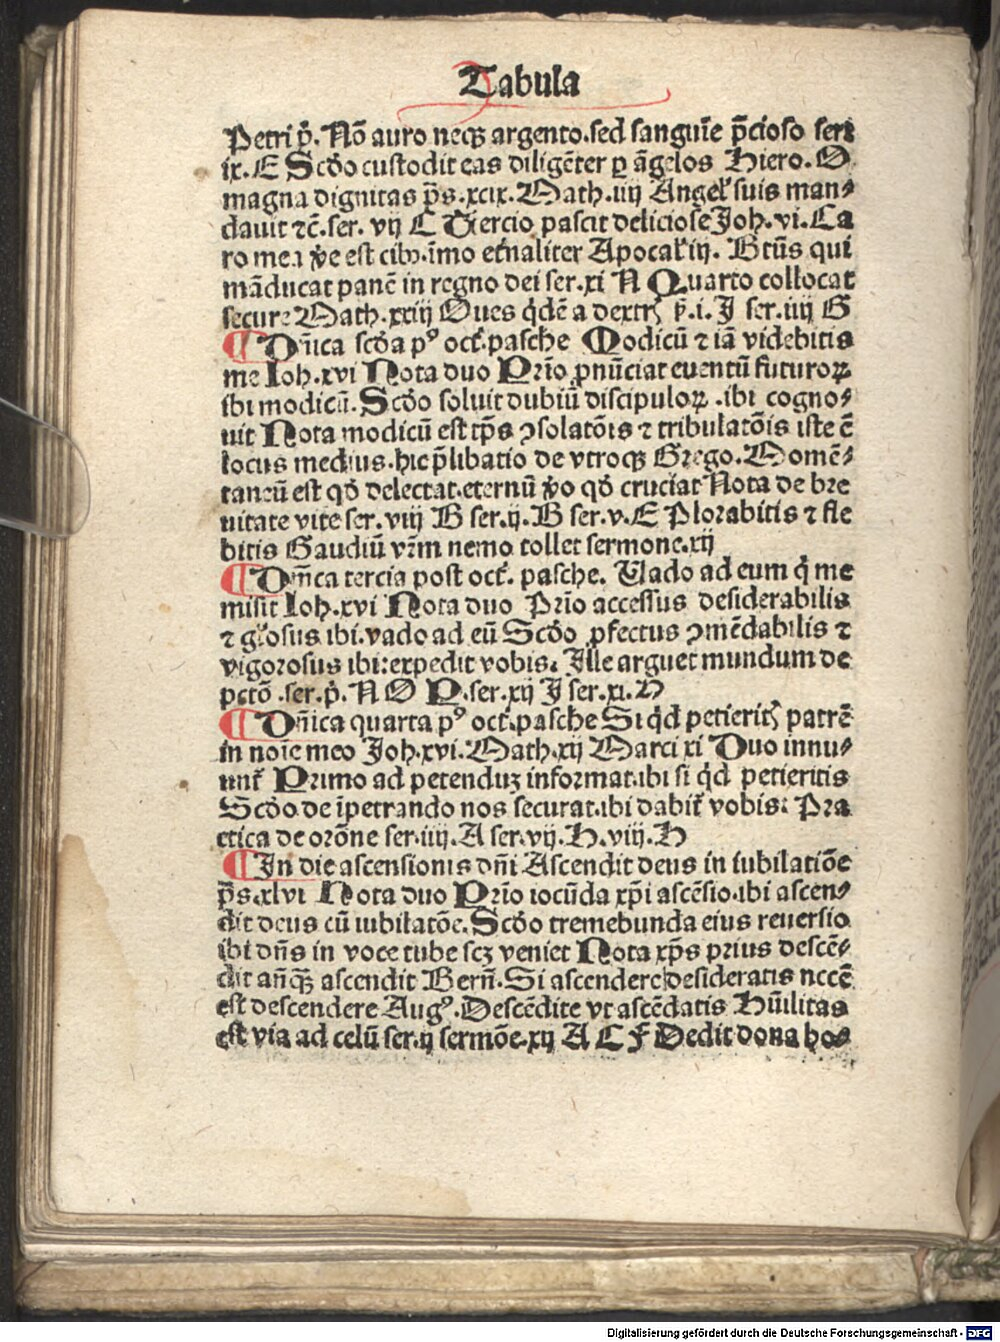 Tabula
Petri p̄. Nō auro neqꝫ argento.sed sanguīe p̄cioso ser:
ix. E Scd̄o custodit eas diligēter ꝑ āgelos Hiero. O
magna dignitas ps̄.xcix. Math.iiij Angel̛ suis man-
dauit ⁊c̄.ser. vij C Tercio pascit deliciose Joh.vi. Ca
ro mea v̄e est cibꝰ.īmo et̄naliter Apocal̛ iij. Btūs qui
māducat panē in regno dei ser.xi N Quarto collocat
secure Math.xxiij Oues q̇dē a dextrꝭ p̄.i. J ser.iiij G
¶ Dn̄ica scd̄a pꝰ oct̄.pasche Modicū ⁊ iā videbitis
me Ioh.xvi Nota duo Prīo ꝓnūciat euentū futuroꝝ
ibi modicū. Scd̄o soluit dubiū discipuloꝝ .ibi cogno-
uit Nota modicū est tp̄s ꝯsolatōis ⁊ tribulatōis iste ē
locus medius.hic p̄libatio de vtroqꝫ Grego. Momē-
taneū est qd̄ delectat.eternū v̄o qd̄ cruciat Nota de bre
uitate vite ser.viij B ser.ij. B ser.v. E Plorabitis ⁊ fle
bitis Gaudiū vr̄m nemo tollet sermone.xij
¶ Dn̄ica tercia post oct̄. pasche. Vado ad eum q̇ me
misit Ioh.xvi Nota duo Prīo accessus desiderabilis
⁊ gl̄osus ibi.vado ad eū Scd̄o ꝓfectus ꝯmēdabilis ⁊
vigorosus ibi:expedit vobis. Ille arguet mundum de
pctō .ser.p̄. N O P.ser.xij J ser.xi. H
¶ Dn̄ica quarta pꝰ oct̄.pasche Si qd̄ petieritꝭ patrē
in noīe meo Joh.xvi. Math.xij Marci xi Duo innu-
unt̄ Primo ad petenduꝫ informat.ibi si qd̄ petieritis
Scd̄o.de īpetrando nos securat.ibi dabit̄ vobis: Pra
ctica de orōne ser.iiij. A ser.vij. H.viij. H
¶ In die ascensionis dn̄i Ascendit deus in iubilatiōe
ps̄.xlvi Nota duo Prīo iocūda xp̄i ascēsio.ibi ascen-
dit deus cū iubilatōe. Scd̄o tremebunda eius reuersio
ibi dn̄s in voce tube scꝫ veniet Nota xp̄s prius descē-
dit an̄qꝫ̄ ascendit Bern̄. Si ascendere desideratis necē
est descendere Augꝰ. Descēdite vt ascēdatis Hūilitas
est via ad celū ser.ij sermōe.xij A C F Dedit dona ho-
Digitalisierung gefördert durch die Deutsche Forschungsgemeinschaft - DFG